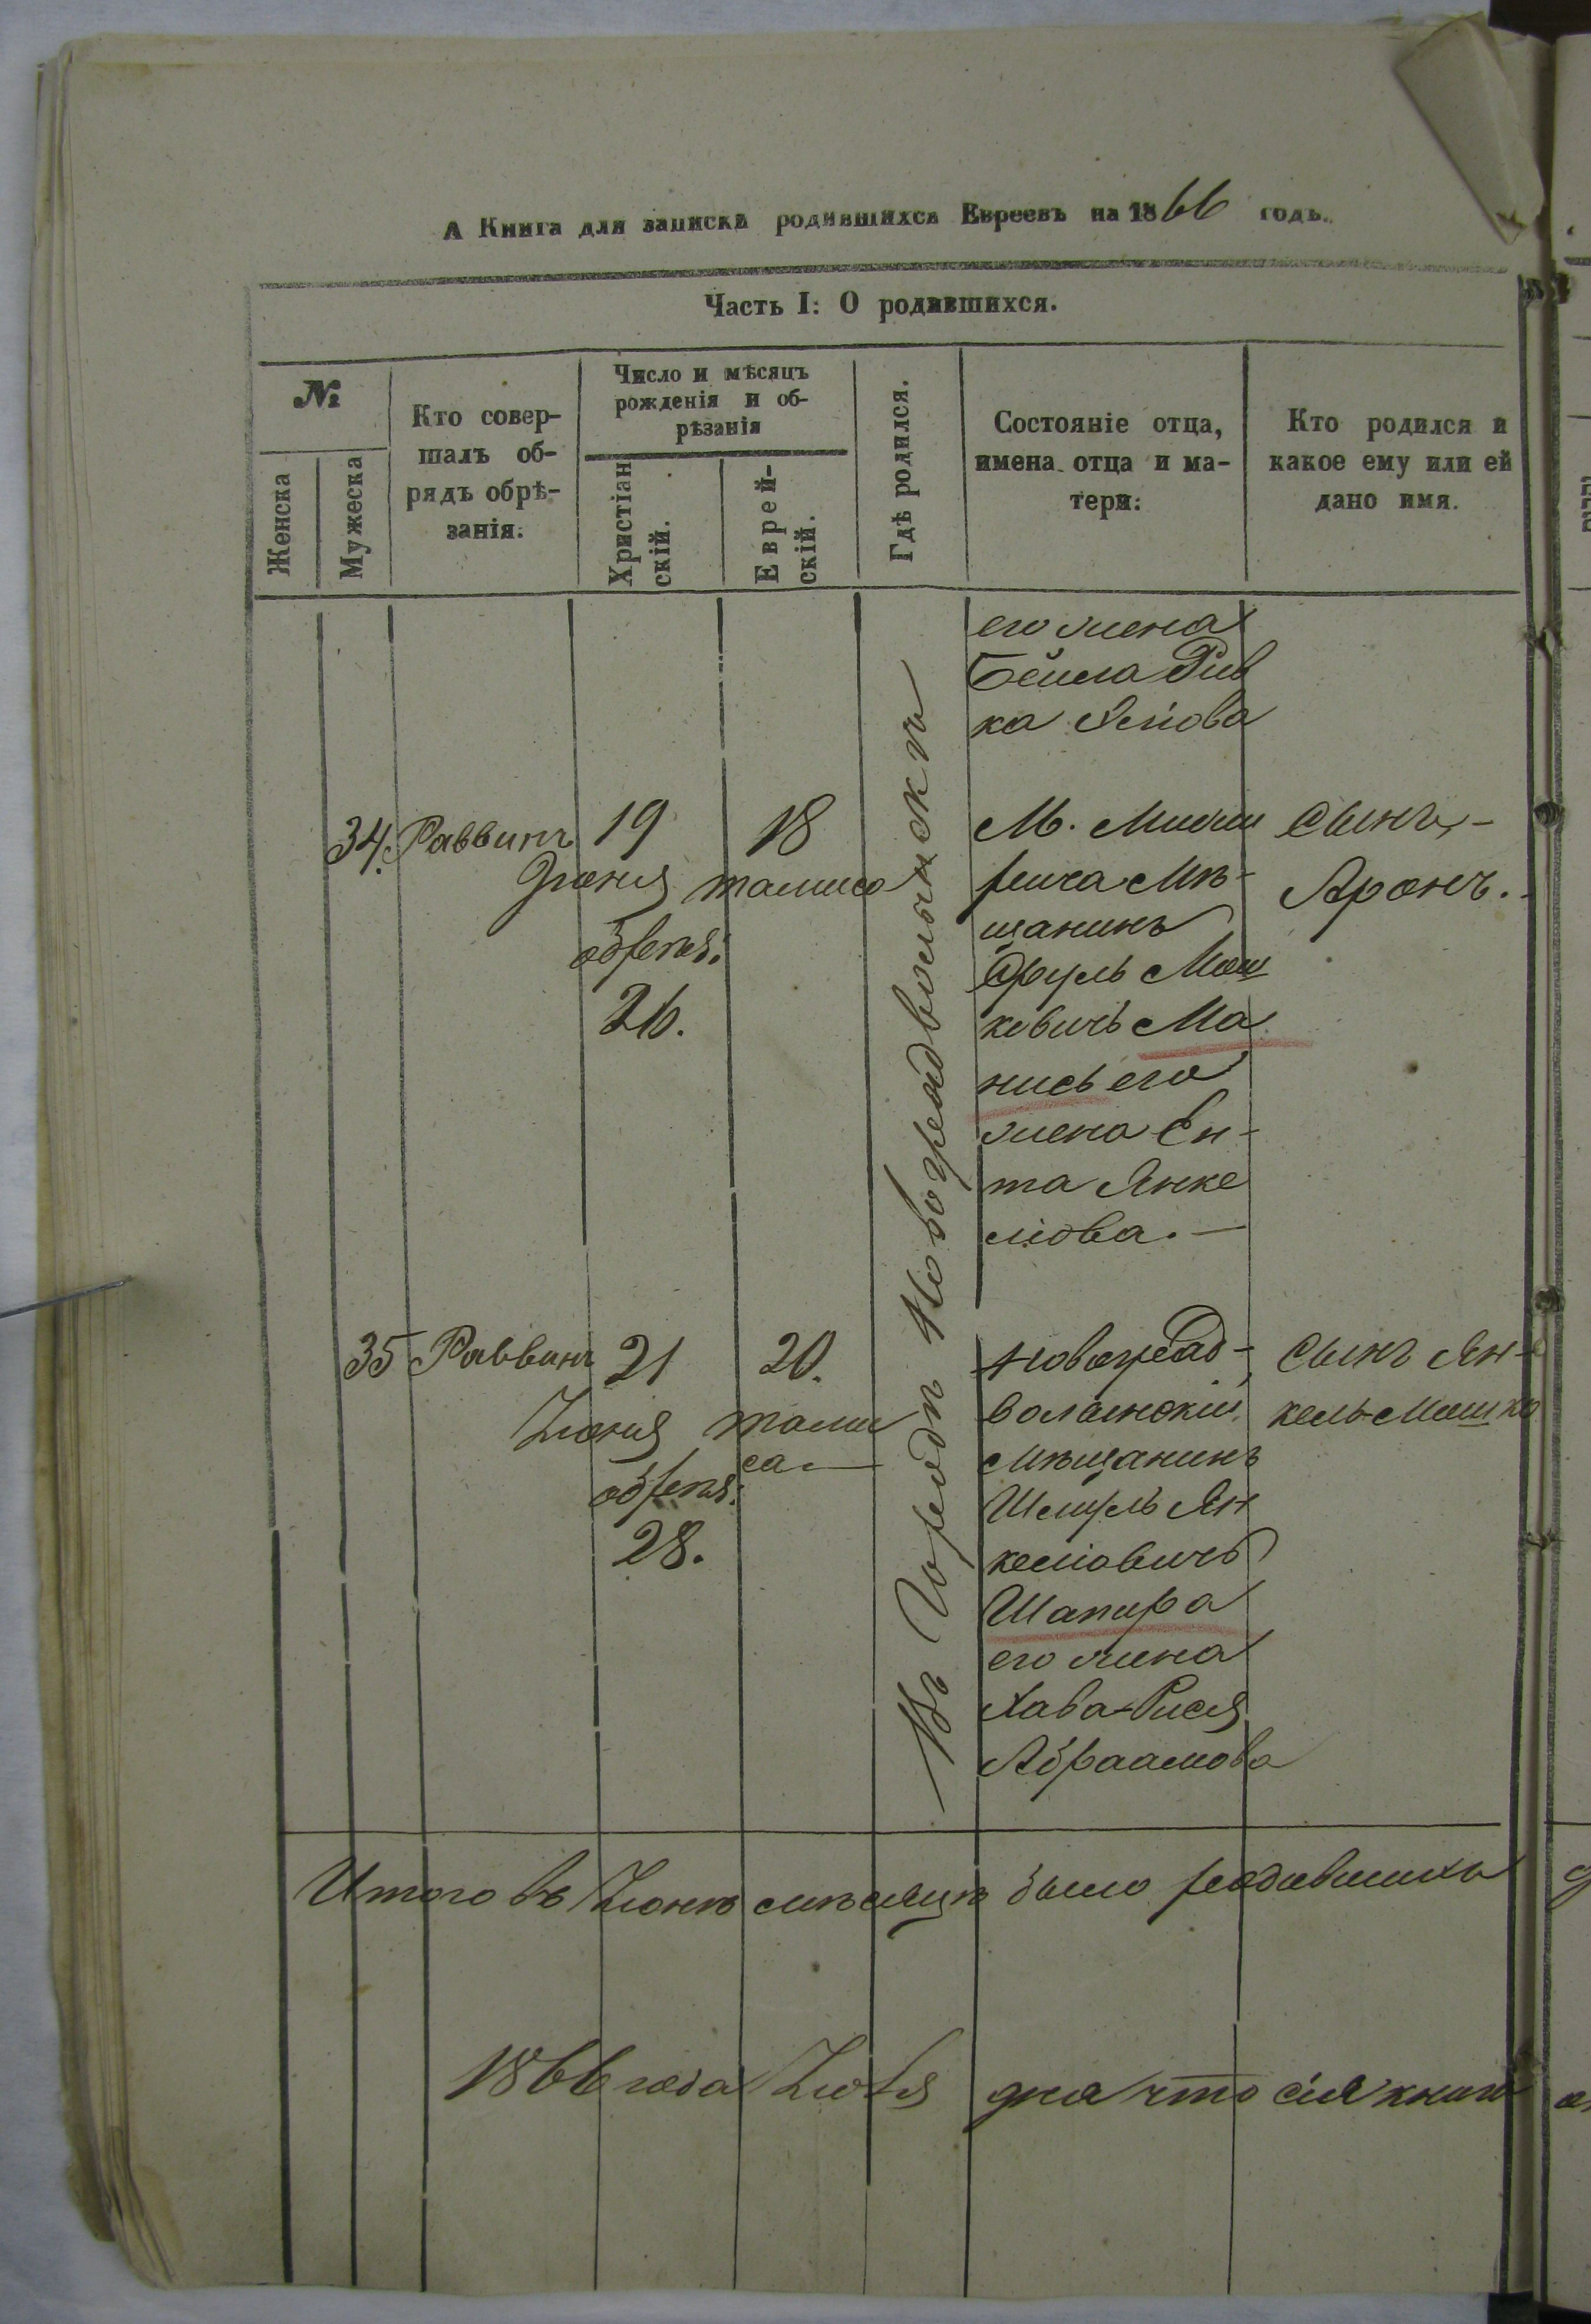 А Книга для записки родившихся Евреевъ на 1866 годъ.
Часть I: О родившихся.
№
Женска
Мужеска
Кто совер-
шалъ об-
рядъ обрѣ-
занія.
Число и мѣсяцъ
рожденія и об-
рѣзанія
Христіан
скій.
Еврей-
скій.
Гдѣ родился.
Состояніе отца,
имена отца и ма-
тери:
Кто родился и
какое ему или ей
дано имя.
его жена
Бейла Рив
ка
Въ Городѣ Новоградволынскѣ
34. Раввинъ
19
Іюня
обрѣза:
26.
18
тамиса
М.
Мѣ-
щанинъ
Сруль Мош
ковичъ Ма
нисъ его
жена Ен-
та Янке
лова. —
Сынъ, -
Аронъ.
35 Раввинъ
21
Іюня
обрѣза:
28.
20.
тами
са —
Новоград-
волынскій
Мѣщанинъ
Шмуль Ян
келіовичъ
Шапира
его жена
Хава-Рися
Абраамова
Сынъ Ян-
кель-Мошко
Итого въ Іюнѣ мѣсяцѣ было родившихъ
1866 года Іюля дня что сія книга